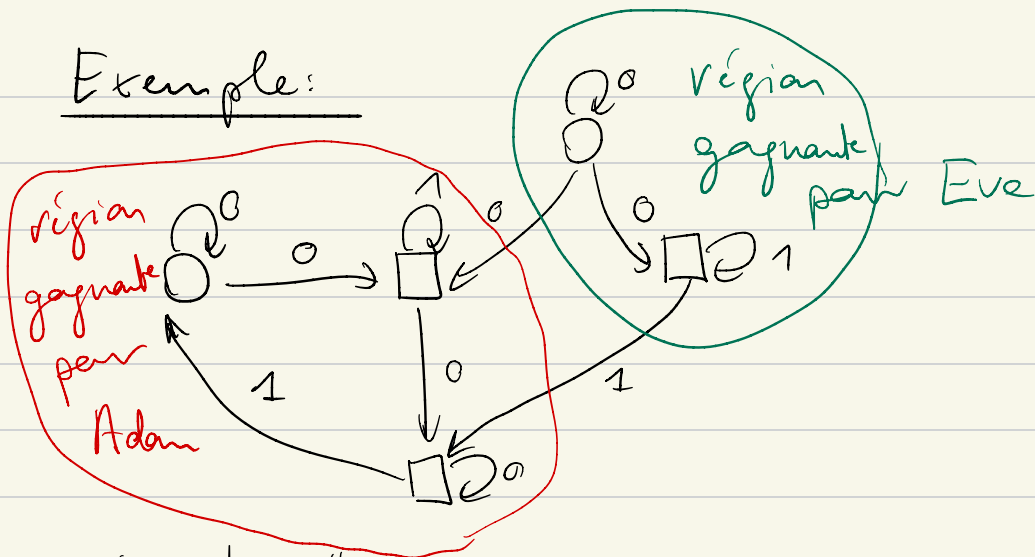 Exemple:
région
gagnante
pour Eve
région
gagnante
pour
Adam
0
0
1
0
0
0
1
0
1
1
0